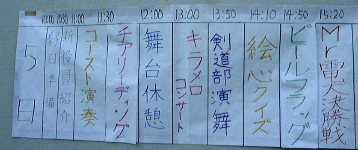 10:00 10:30 11:00 11:30 12:00 13:00 13:50 14:10 14:50 15:20
5日
準備
新役員紹介
コースト演奏
チアリーディング
舞台休憩
キラメロコンサート
剣道部演舞
絵心クイズ
ビールフラッグ
Mr電大決勝戦